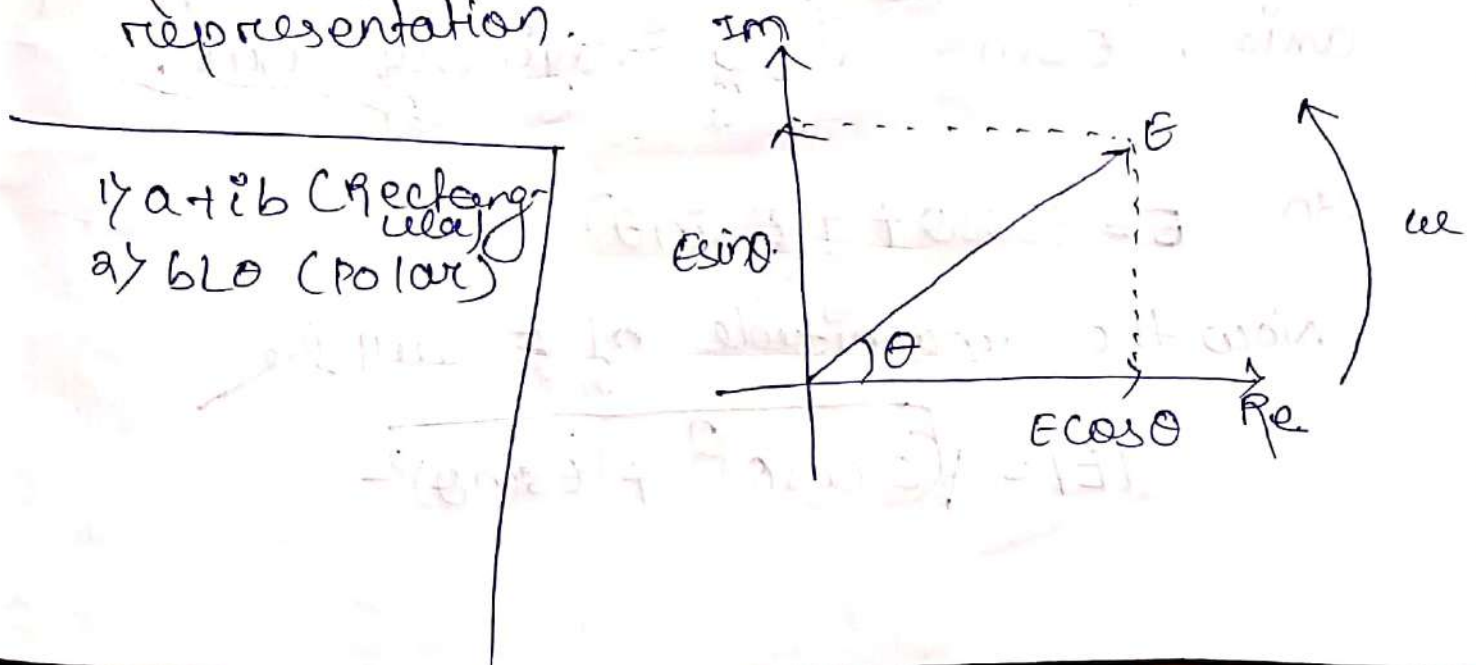 representation.
1) a+ib (Rectang-
ular)
2) b∠θ (Polar)
Im
E
Esinθ
θ
Ecosθ
Re